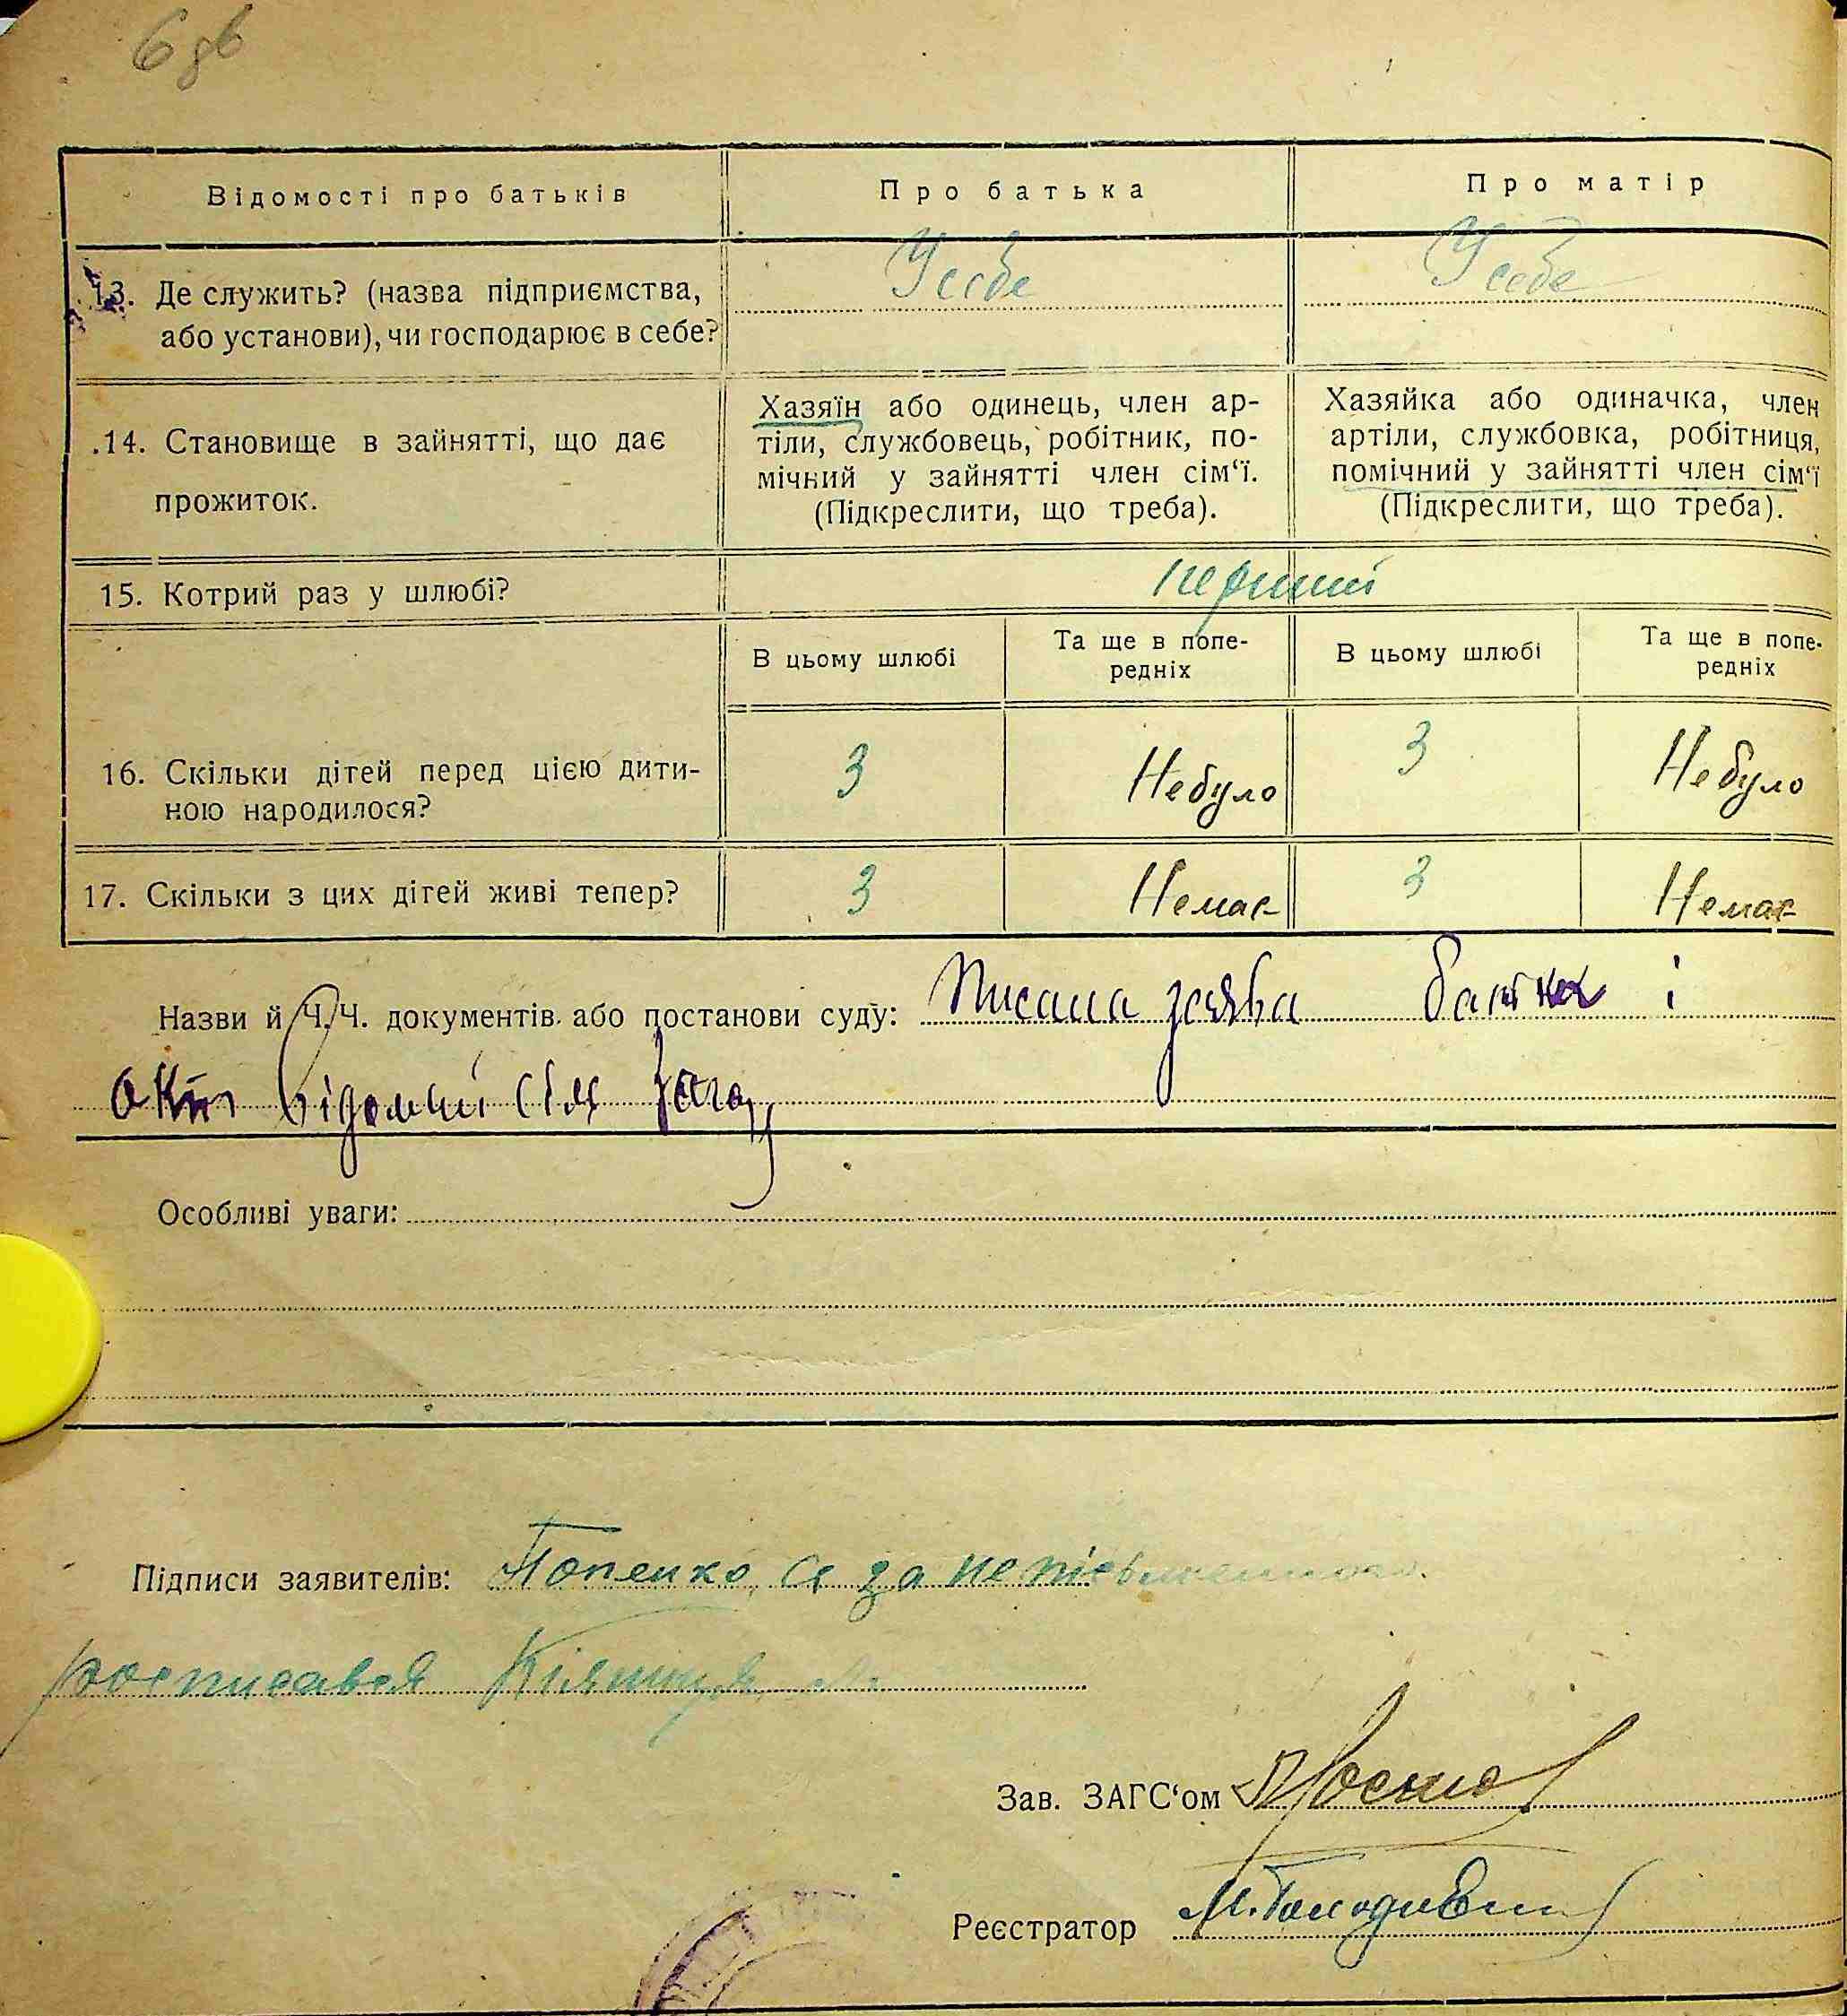 6 зв
Відомості про батьків
Про батька
Про матір
13. Де служить? (назва підприємства,
або установи), чи господарює в себе?
У себе
У себе
14. Становище в зайнятті, що дає
прожиток.
Хазяїн або одинець, член ар-
тіли, службовець, робітник, по-
мічний у зайнятті член сім'ї.
(Підкреслити, що треба).
Хазяйка або одиначка, член
артіли, службовка, робітниця,
помічний у зайнятті член сім'ї
(Підкреслити, що треба).
15. Котрий раз у шлюбі?
перший
В цьому шлюбі
Та ще в попе-
редніх
В цьому шлюбі
Та ще в попе-
редніх
16. Скільки дітей перед цією дити-
ною народилося?
3
Небуло
3
Небуло
17. Скільки з цих дітей живі тепер?
3
Немає
3
Немає
Назви й Ч.Ч. документів або постанови суду: Писана заява батька і
акт відомий
Особливі уваги:
Підписи заявителів: Попенко, а за неписьменного
росписався
Зав. ЗАГС'ом
Реєстратор